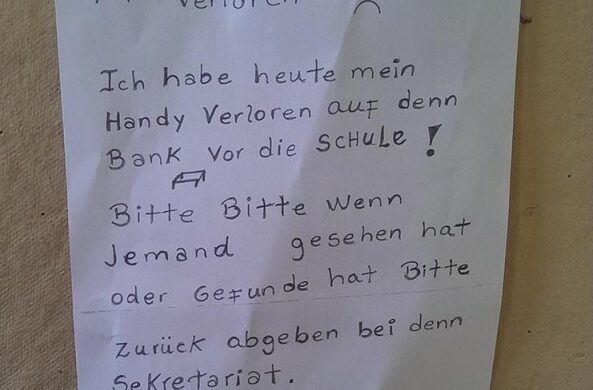 verloren
Ich habe heute mein
Handy Verloren auf denn
Bank vor die SCHULE !
Bitte Bitte wenn
Jemand gesehen hat
oder Gefunde hat Bitte
zurück abgeben bei denn
Sekretariat.